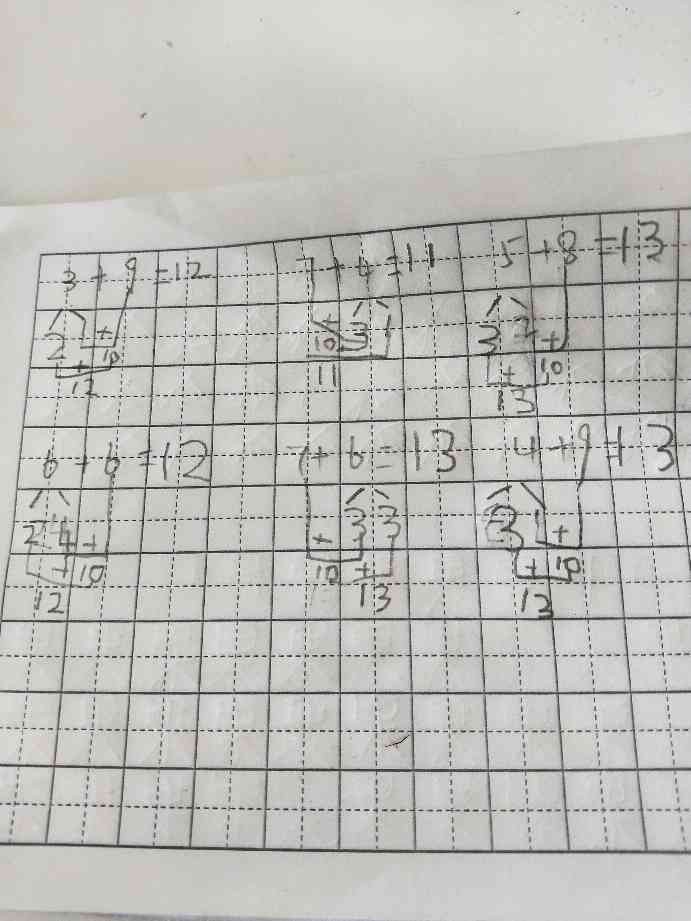 3 + 9 = 12 7 + 4 = 11 5 + 8 = 13
2 1 + 10 + 10 3 1 3 2 + 10
+ 12 11 + 13
6 + 6 = 12 7 + 6 = 13 4 + 9 = 13
2 4 + + 3 3 3 1 +
+ 10 10 + + 10
12 13 13